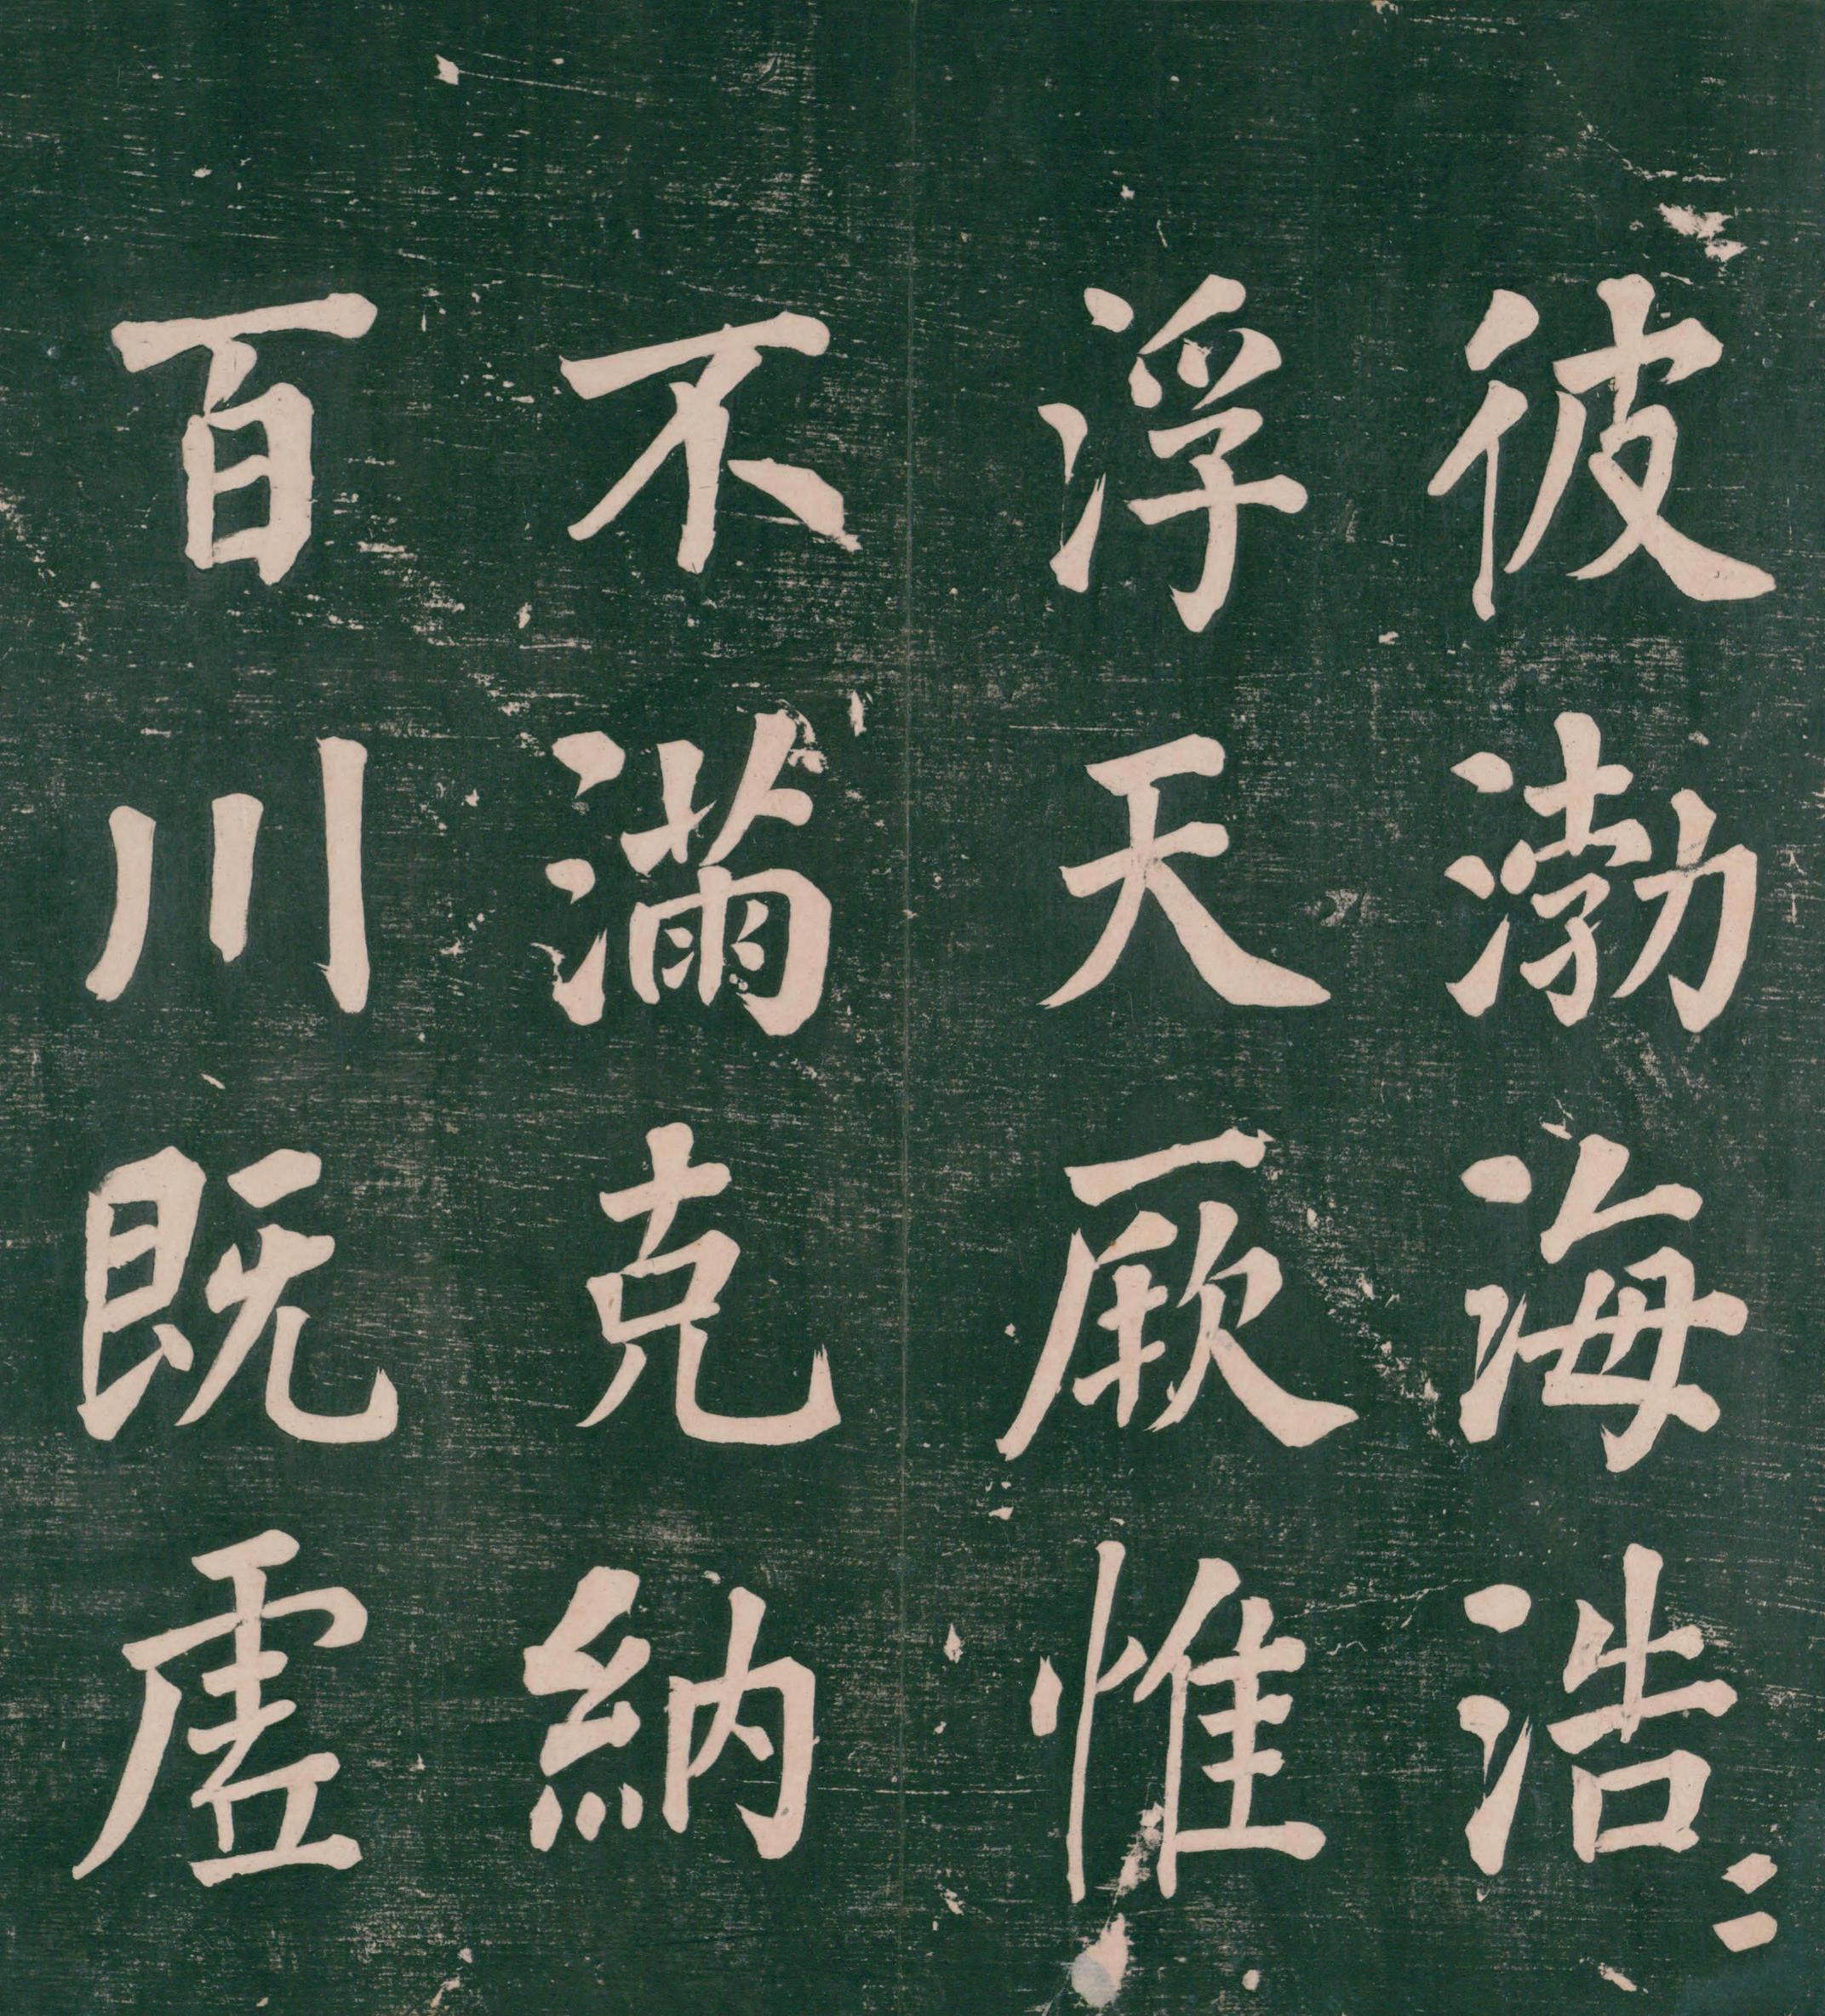 彼渤海浩〻
浮天厥惟
不滿克納
百川既虗